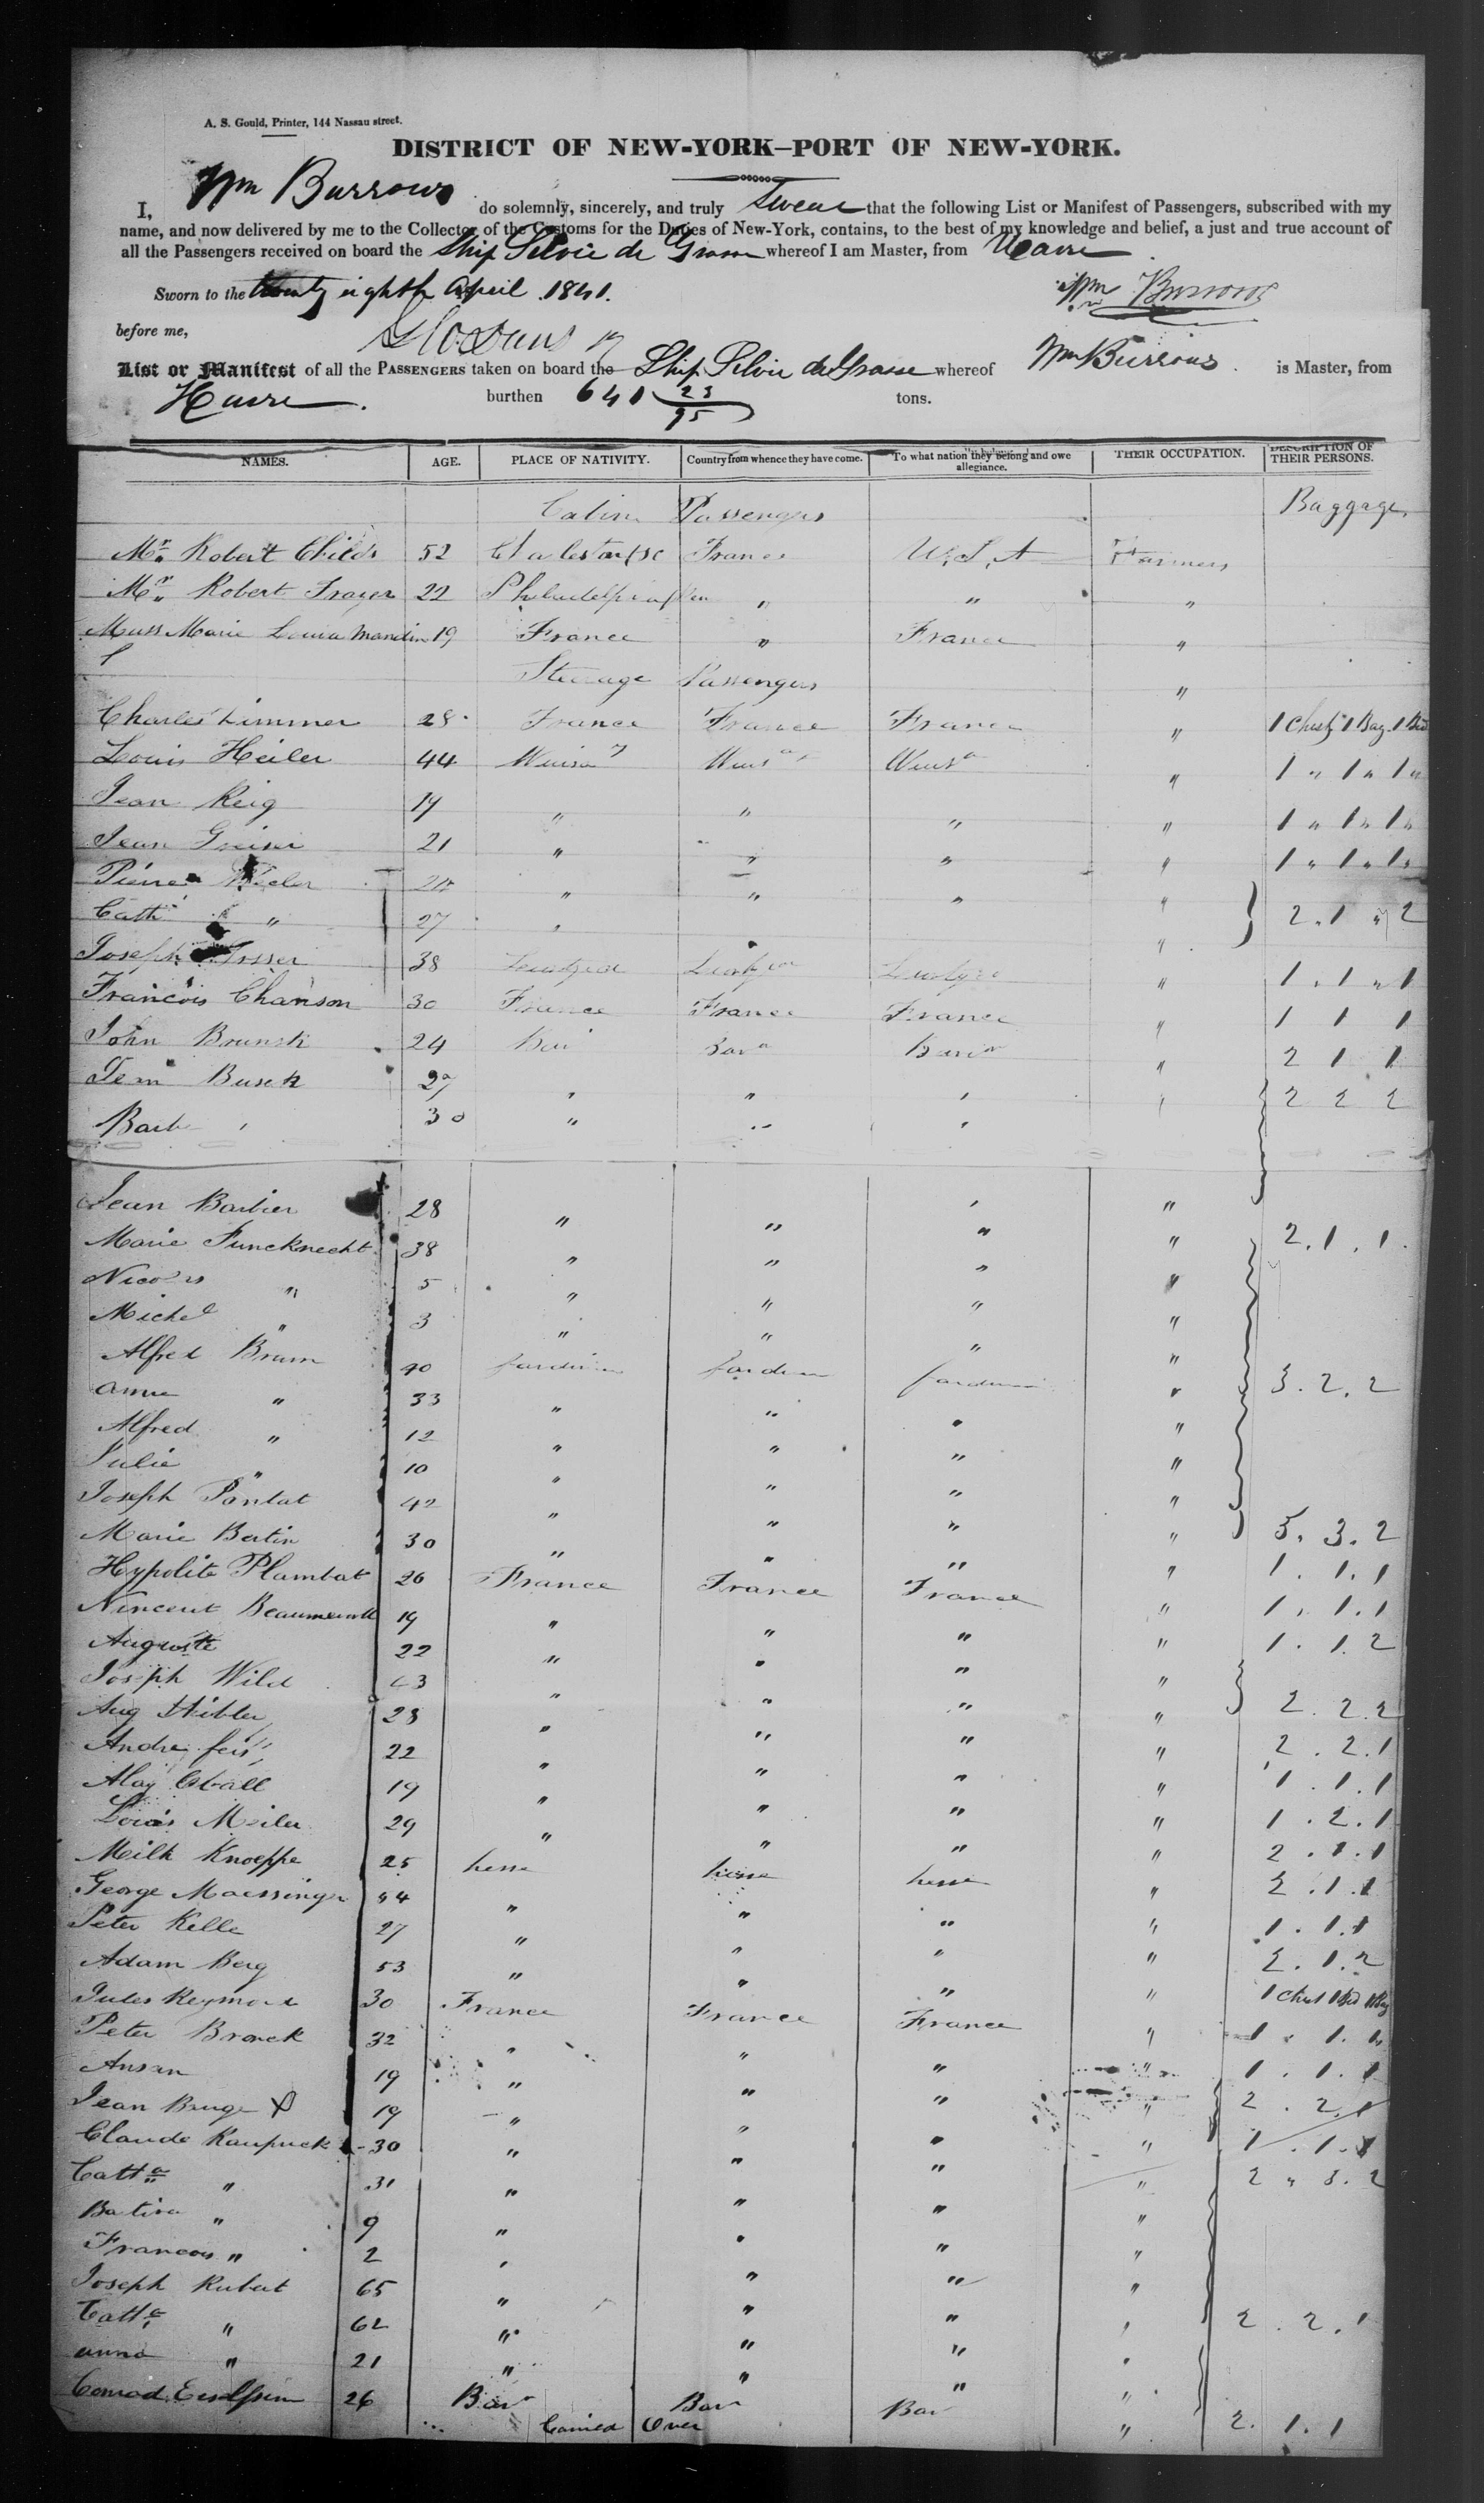 A. S. Gould, Printer, 144 Nassau street.
DISTRICT OF NEW-YORK—PORT OF NEW-YORK.
I, Wm Burrows do solemnly, sincerely, and truly Swear that the following List or Manifest of Passengers, subscribed with my
name, and now delivered by me to the Collector of the Customs for the Duties of New-York, contains, to the best of my knowledge and belief, a just and true account of
all the Passengers received on board the Ship Silvie de Grasse whereof I am Master, from Havre
Sworn to the twenty eighth April 1841. Wm Burrows
before me,
List or Manifest of all the PASSENGERS taken on board the Ship Silvie de Grasse whereof Wm Burrows is Master, from
Havre. burthen 641 23/95 tons.
NAMES. AGE. PLACE OF NATIVITY. Country from whence they have come. To what nation they belong and owe allegiance. THEIR OCCUPATION. DESCRIPTION OF THEIR PERSONS.
Cabin Passengers Baggage
Mr. Robert Childs 52 Charleston SC France U.S.A Farmers
Mr. Robert Frazer 22 Philadelphia " " "
Marie Louisa 19 France " France "
Steerage Passengers "
Charles Zimmer 28 France France France " 1 Chest 1 Bag 1 Bed
Louis Heiler 44 " 1 " 1 " 1 "
Jean Reig 19 " " " " 1 " 1 " 1 "
Jean 21 " " " " 1 " 1 " 1 "
Pierre " " " "
Cath " 27 " " 2 . 1 " 2
Joseph 38 " 1 . 1 " 1
Francois Chanson 30 France France France " 1 1 1
John Brunsk 24 Bav Bava Bava " 2 1 1
Busch " " " " 2 2 2
Barb " 30 " " "
Jean Barbier 28 " " " "
Marie Funcknecht 38 " " " " 2 . 1 . 1
Nicolas " 5 " " " "
Michel " 3 " " " "
Alfred Brum 40 "
Anne " 33 " " " " 3 . 2 . 2
Alfred " 12 " " " "
Julie " 10 " " " "
Joseph Pantat 42 " " " "
Marie Bertin 30 " " " " 5 . 3 . 2
Hypolite Plambat 26 France France France " 1 . 1 . 1
Vincent 19 " " " " 1 . 1 . 1
Auguste 22 " " " " 1 . 1 . 2
Joseph Wild " " " "
Aug Stibler 28 " " " " 2 . 2 . 2
Andre 22 " " " " 2 . 2 . 1
19 " " " " 1 . 1 . 1
Louis Meiler 29 " " " " 1 . 2 . 1
Milk Knoeppe 25 hesse hesse hesse " 2 . 1 . 1
George Maessinger 44 " " " " 2 . 1 . 1
Peter Kelle 27 " " " " 1 . 1 . 1
Adam Berg 53 " " " " 2 . 1 . 2
Jules Reymond 30 France France France " 1 Chest 1 Bed 1 Bag
Peter Bronck 32 " " " " 1 . 1 . 1
19 " " " " 1 . 1 . 1
Jean Bruge 19 " " " " 2 . 2 . 1
Claude Kaupuck 30 " " " " 1 . 1 . 1
Catha " 31 " " " " 2 " 3 . 2
" 9 " " " "
Francois " 2 " " " "
Joseph Rubert 65 " " " "
Catha " 62 " " " " 2 . 2 . 1
anna " 21 " " " "
Conrad 26 Bav Bav Bav " 2 . 1 . 1
Carried Over